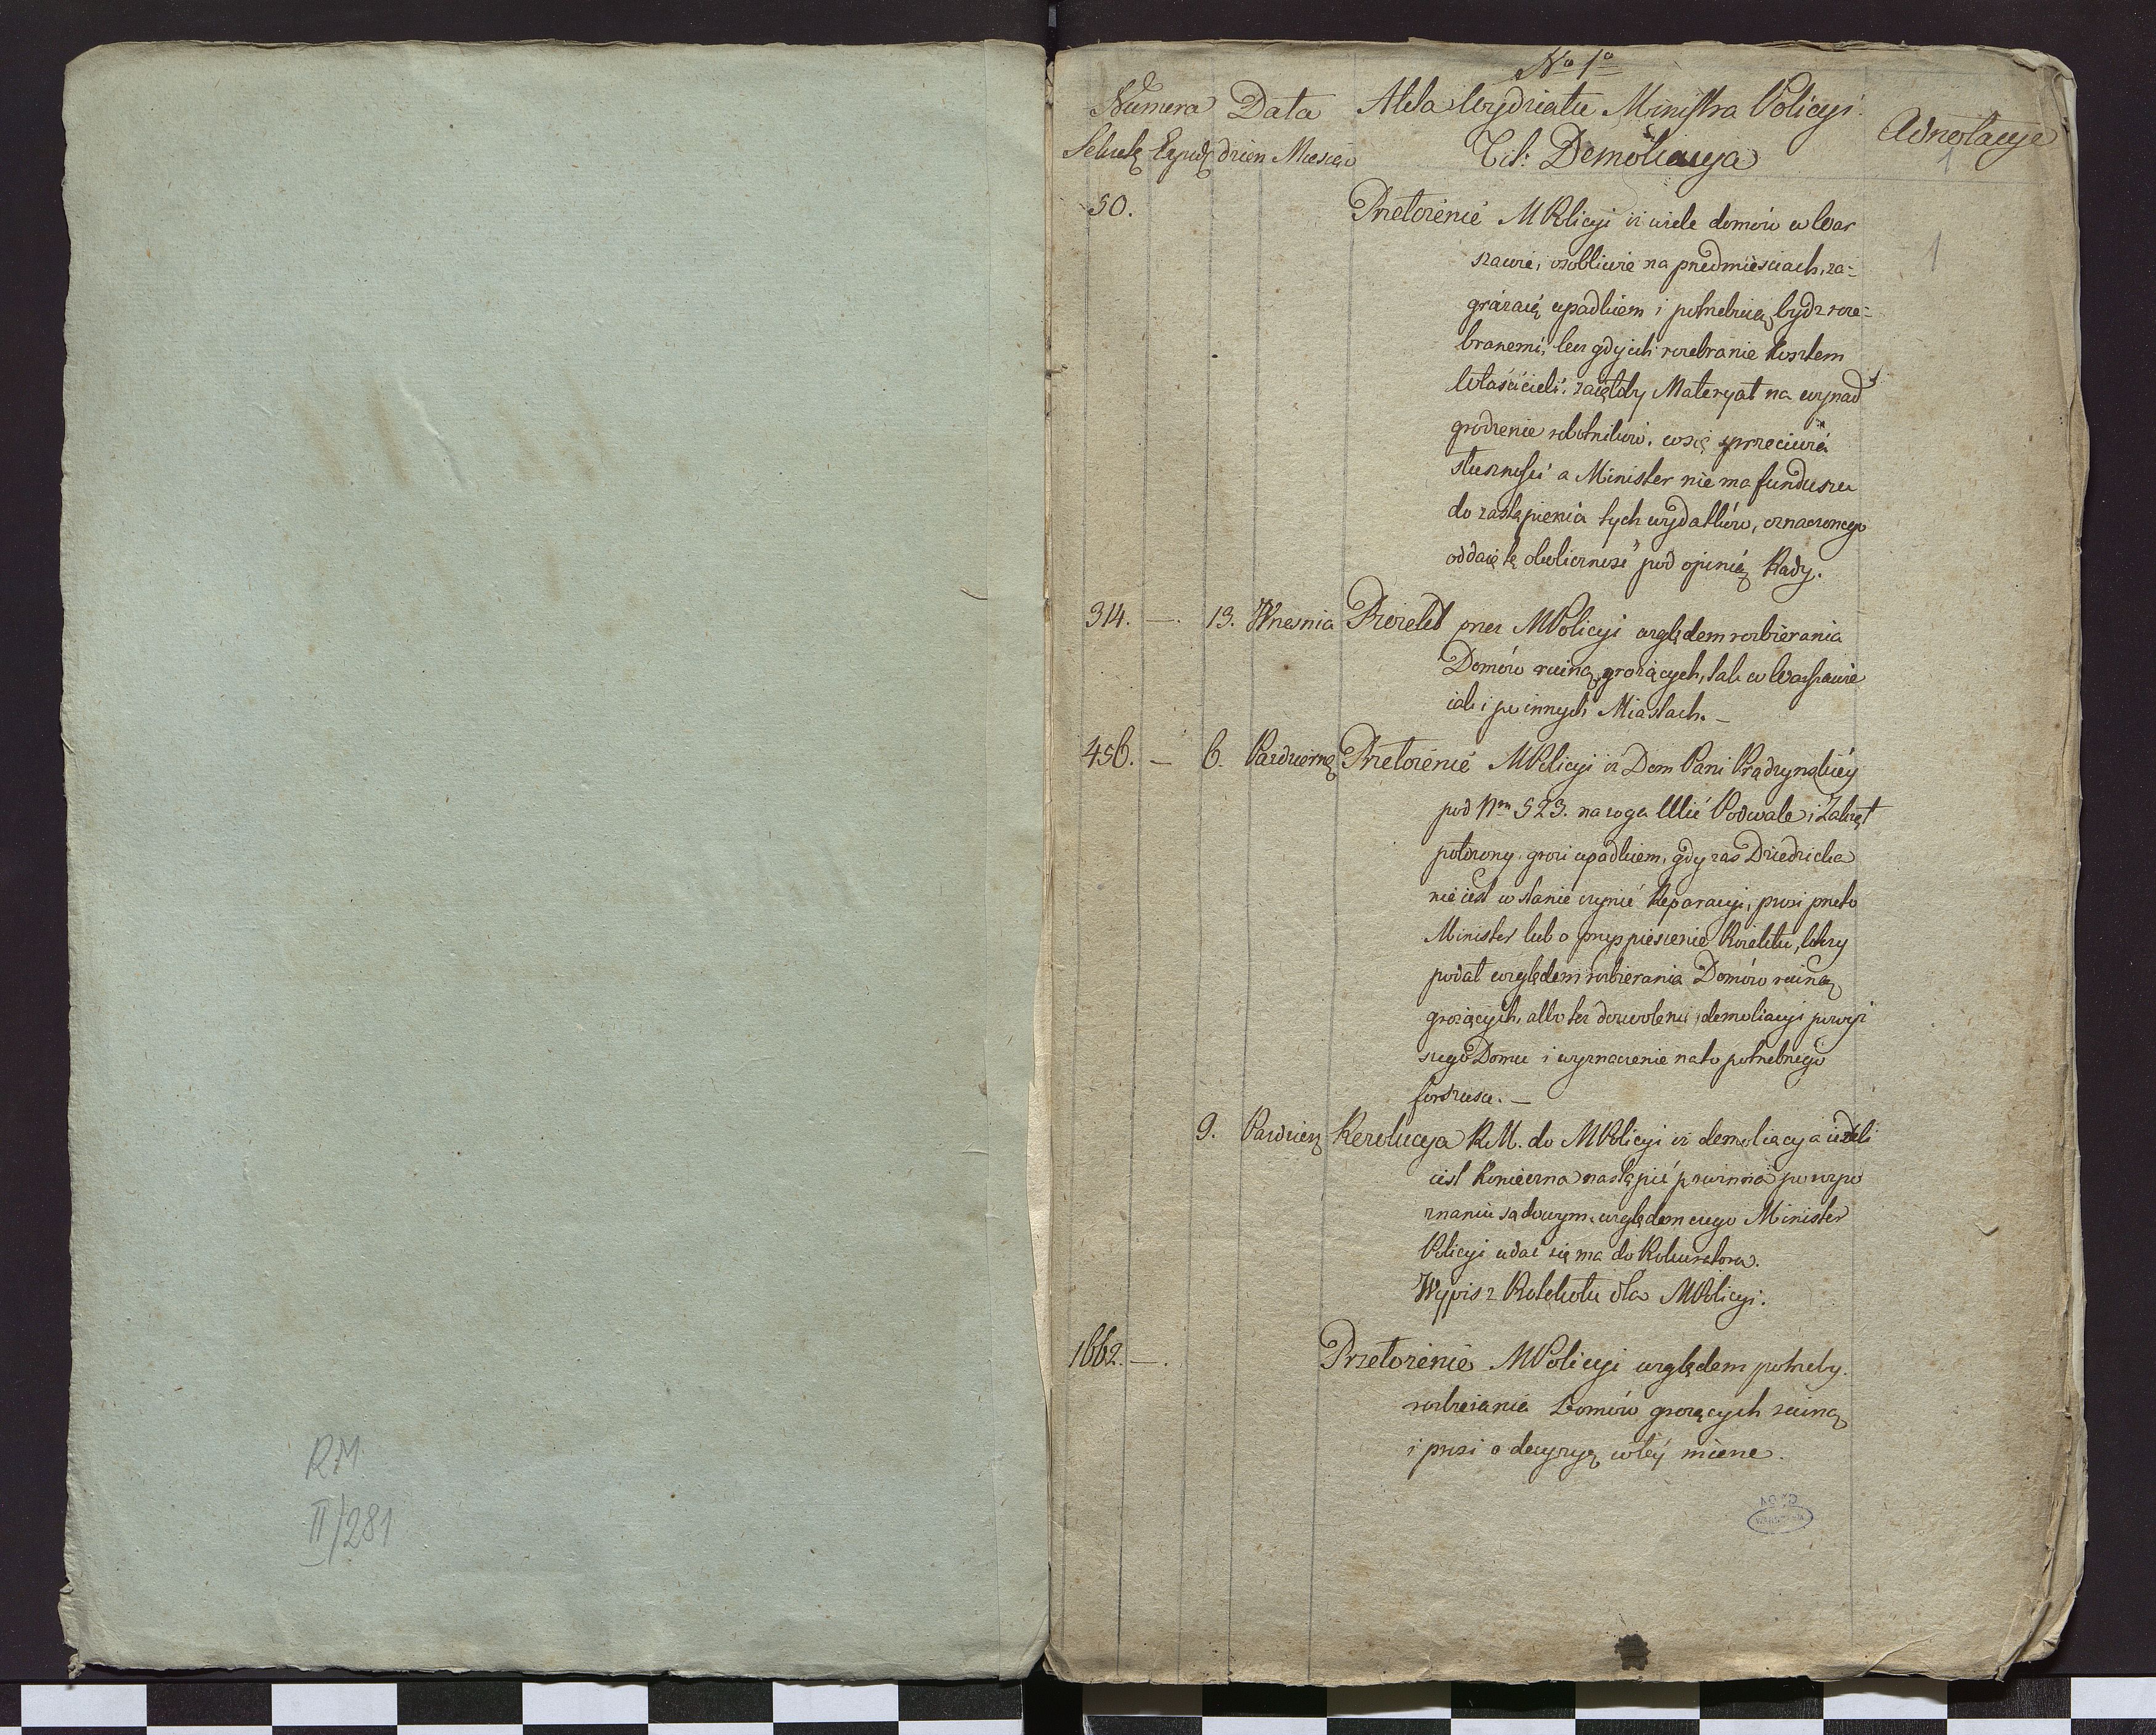 No 1o
Numera Data Akta Wydziału Ministra Policyi
Adnotacye
Sekretę Expedę dzien Miesiąc Tit: Demoliacya
1
50. Przełożenie MPolicyi iż wiele domów w War
szawie, osobliwie na przedmieściach, za-
1
grażaią upadkiem i potrzebuią bydz roze-
branemi, lecz gdy ich rozebranie kosztem
Właścicieli zaięłoby Materyał na wynad
grodzenie robotników, co się sprzeciwia
słuszności a Minister nie ma funduszu
do zastąpienia tych wydatków, oznaczonego
oddaie tę okoliczność pod opinią Rady.
314. — 13. Wrzesnia Proiekt przez MPolicyi względem rozbierania
Domów ruiną grożących, tak w Warszawie
iak i po innych Miastach. —
456. — 6. Pazdziernę Przełożenie MPolicyi iż Dom Pani Prądzynskiey
pod Nrm 523. na rogu Ulic Podwale i Zakręt
położony, grozi upadkiem, gdy zas Dziedziczka
nie iest w stanie czynić Reparacyi, prosi przeto
Minister lub o przyspieszenie Proiektu, który
podał względem rozbierania Domów ruiną
grożących, albo też dozwolenie demoliacyi powyż
szego Domu i wyznaczenie na to potrzebnego
forszusu. —
9. Pazdzierę Rezolucya RM. do MPolicyi iż demoliacya ieżeli
iest konieczna nastąpić powinna po rozpo
znaniu sądowym, względem czego Minister
Policyi udać się ma do Prokuratora.
Wypis z Protokołu dla MPolicyi.
1662. — . Przełożenie MPolicyi względem potrzeby
rozbierania Domów grożących ruiną
i prosi o decyzyą w tey mierze.
RM
II/281
AGAD
WARSZAWA